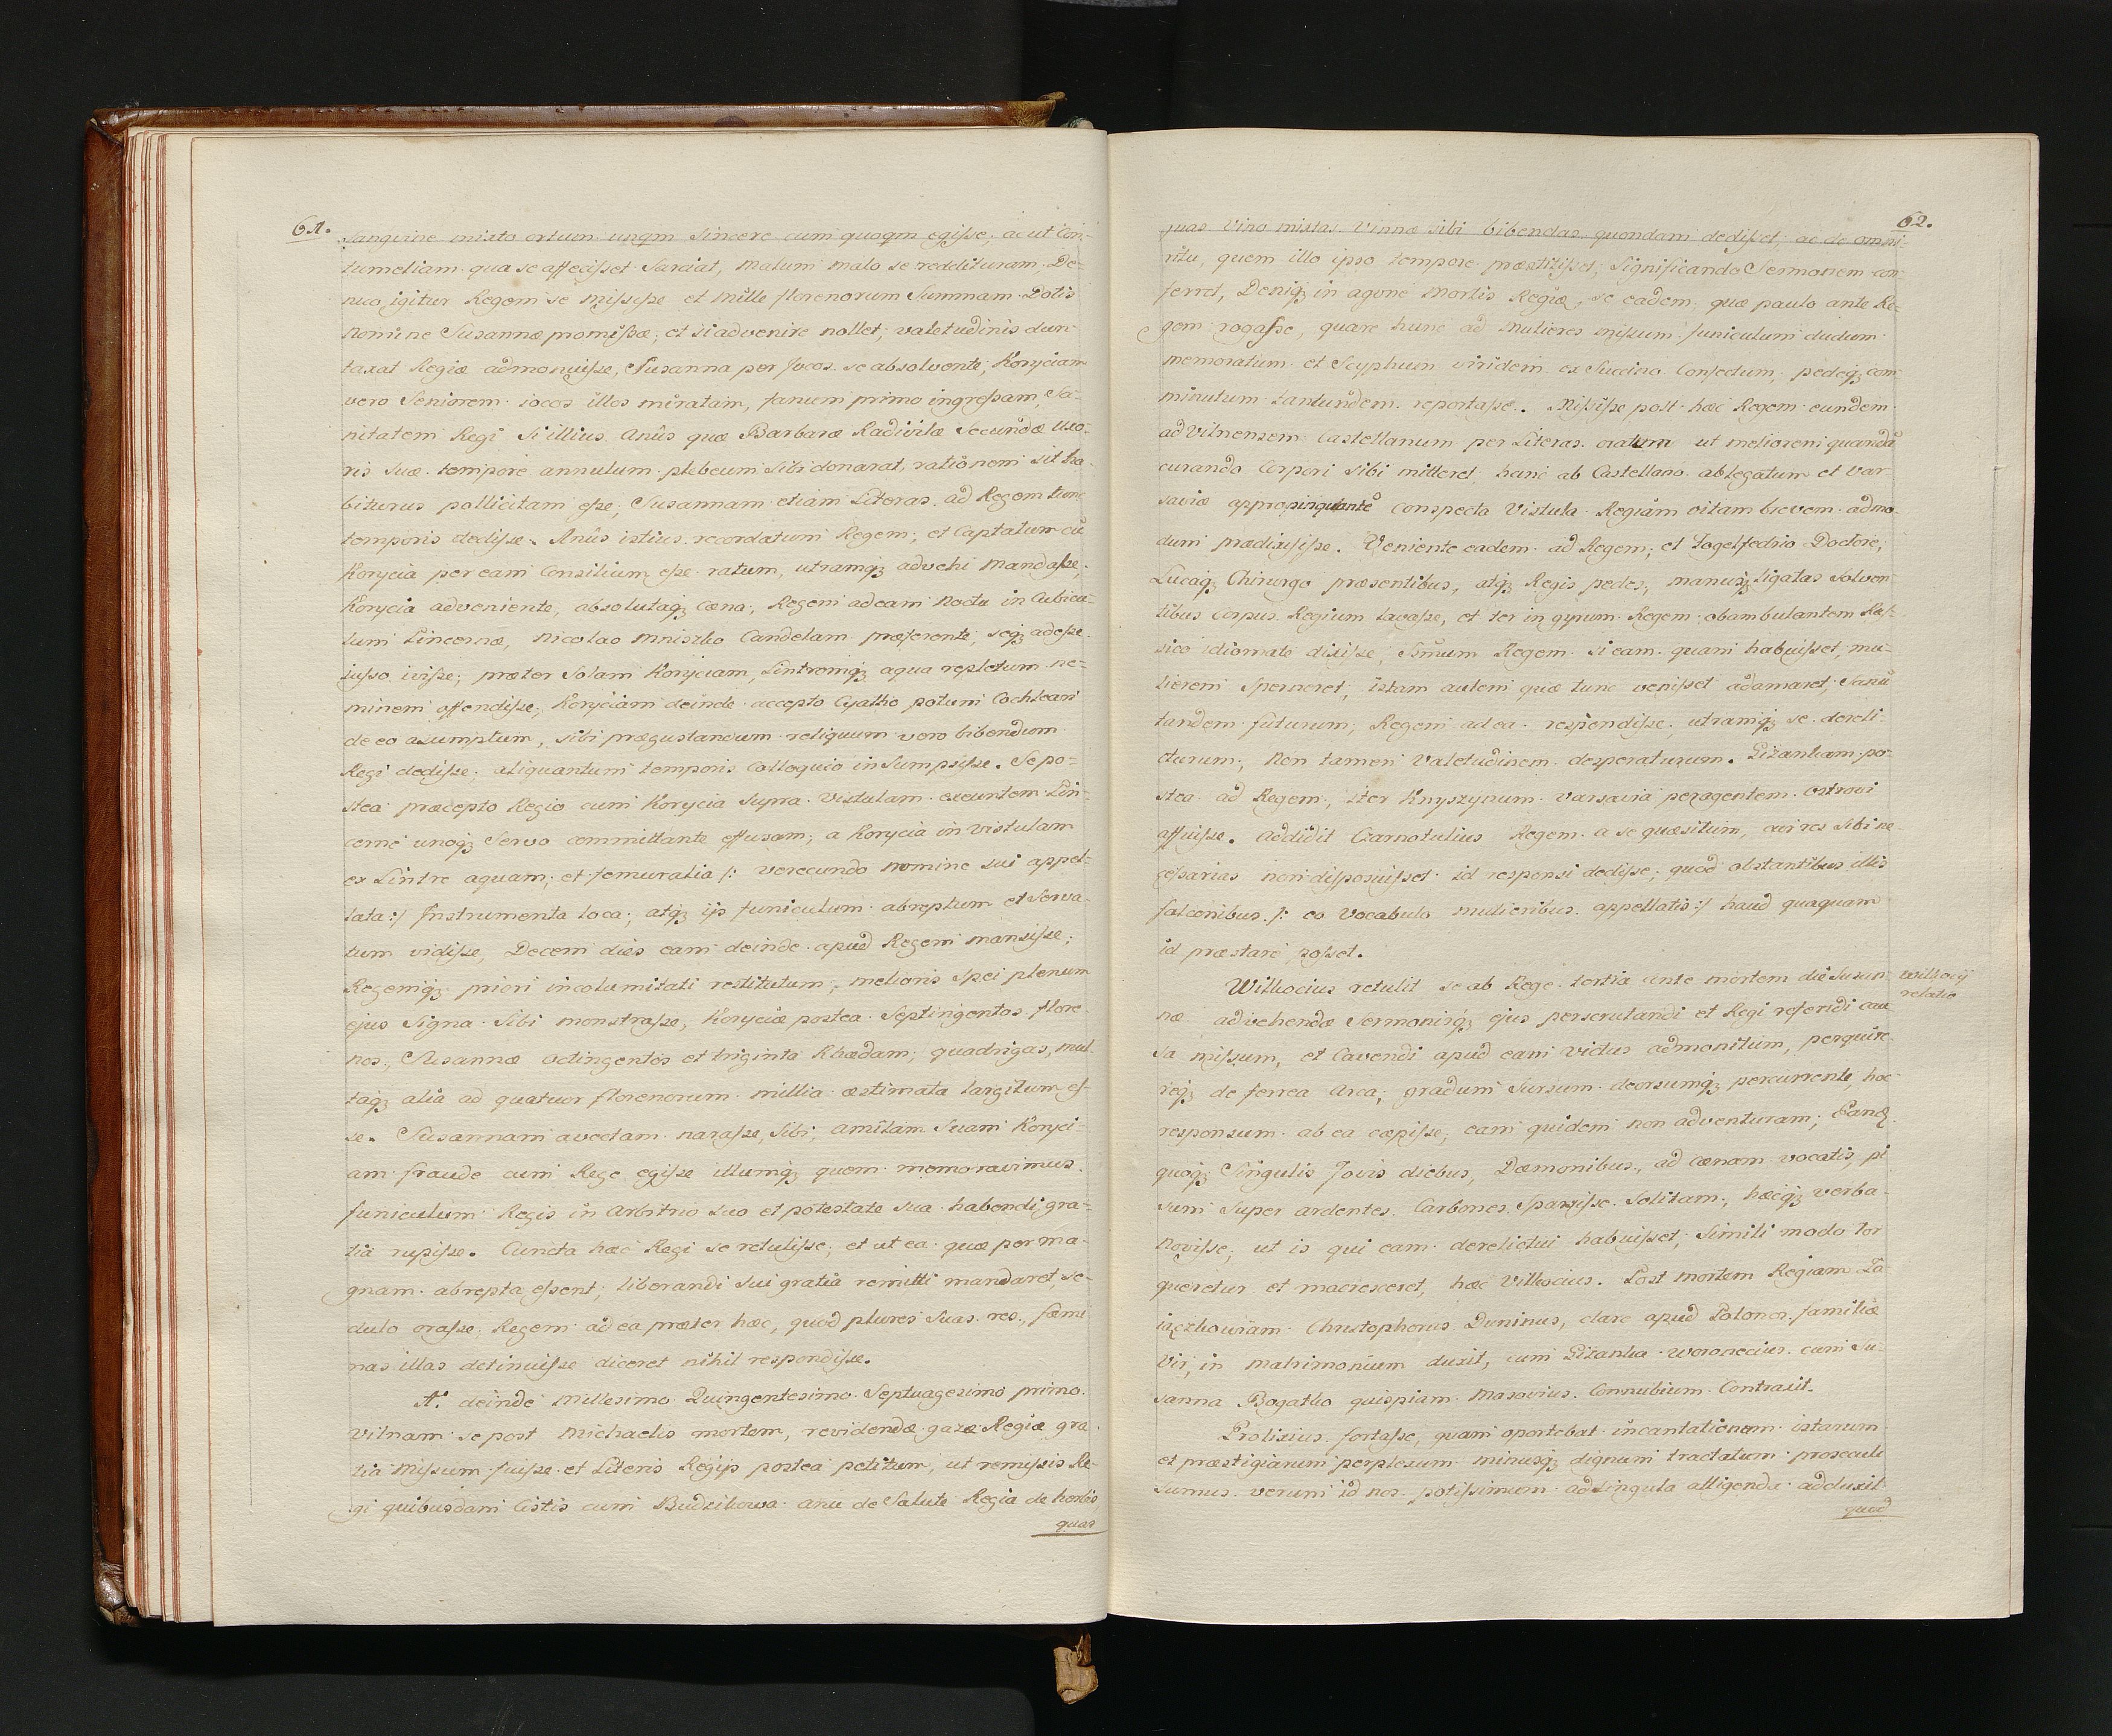 61.
sanguine mixto ortum unqm sincere cum quoqm egisse; ac ut Con-
tumeliam qua se affecisset Sarciat, malum malo se reddituram. De-
nuo igitur Regem se misisse et mille florenorum Summam Dotis
nomine Susannæ promissæ; et si advenire nollet, valetudinis dun-
taxat Regiæ admonuisse, Susanna per Jocos se absolvente, Koryciam
vero Seniorem iocos illos miratam, fanum primo ingressam, Sa-
nitatem Regi si illius Anus quæ Barbaræ Radivilæ Secundæ Uxo-
ris suæ tempore annulum plebeum sibi donarat, rationem sit ha-
biturus pollicitam esse; Susannam etiam Literas ad Regem tunc
temporis dedisse. Anus istius recordatum Regem; et Captatum cu
Korycia per eam Consilium esse ratum, utramq advehi mandasse;
Korycia adveniente, absolutaq cæna, Regem ad eam noctu in Cubicu-
lum Lincernæ, Nicolao Mniszko Candelam præferente, seq adesse
iusso ivisse; præter Solam Koryciam, Lintremq aqua repletum ne-
minem offendisse; Koryciam deinde accepto Cyatho potum Cochleari
de eo asumptum, sibi prægustandum reliquum vero bibendum
Regi dedisse, aliquantum temporis Colloquio insumpsisse. Se po-
stea præcepto Regio cum Korycia supra Vistulam exeuntem Lin-
cerne unoq Servo committante effusam; a Korycia in Vistulam
ex Lintre aquam; et femuralia /: verecundo nomine sui appel-
lata :/ Instrumenta loca; atq ijs funiculum abreptum et serva-
tum vidisse, Decem dies eam deinde apud Regem mansisse;
Regemq priori incolumitati restitutum; melioris spei plenum
ejus Signa Sibi monstrasse, Koryciæ postea Septingentos flore-
nos, Susannæ octingentos et triginta Rhædam; quadrigas, mul-
taq alia ad quatuor florenorum millia æstimata largitum es-
se. Susannam avectam narasse, sibi, amitam Suam Koryci-
am fraude cum Rege egisse illumq quem memoravimus
funiculum Regis in Arbitrio suo et potestate sua habendi gra-
tia rupisse. Cuncta hæc Regi se retulisse; et ut ea quæ per ma-
gnam abrepta essent; liberandi sui gratia remitti mandaret, se-
dulo orasse; Regem ad ea præter hæc, quod plures Suas res, fæmi
nas illas detinuisse diceret nihil respondisse.
A. deinde Millesimo Quingentesimo Septuagesimo primo
Vilnam se post Michaelis mortem, revidendæ gazæ Regiæ gra-
tia missum fuisse et Literis Regijs postea petitum, ut remissis Re-
gi quibusdam Cistis cum Budzikowa anu de Salute Regia de herbis,
quas
62.
quas Vino mixtas Vinnæ sibi bibendas quondam dedisset; ac de omni
ritu, quem illo ipso tempore præstitisset, Significando Sermonem con-
ferret, Deniq in agone Mortis Regiæ, se eadem quæ paulo ante Re-
gem rogasse, quare hunc ad Mulieres missum funiculum dudum
memoratum et Scyphum viridem ex Succino Confectum, pedeq com-
minutum tantundem reportasse. Misisse post hæc Regem eundem
ad Vilnensem Castellanum per Literas oratum ut meliorem quandã
curando Corpori sibi mitteret, hanc ab Castellano ablegatum et Var-
saviæ appropinquante conspecta Vistula Regiam vitam brevem admo-
dum prædixisse. Veniente eadem ad Regem; et Fogelfedrio Doctore,
Lucaq Chirurgo præsentibus, atq Regis pedes, manusq ligatas Solven-
tibus Corpus Regium lavasse, et ter in gyrum Regem obambulantem Ras-
sico idiomate dixisse, Simum Regem si eam quam habuisset, mu-
lierem sperneret; istam autem quæ tunc venisset adamaret, Sanũ
tandem futurum, Regem ad ea respondisse, utramq se dereli-
cturum; Non tamen Valetudinem desperaturum. Gizankam po-
stea ad Regem, iter Knyszynum Varsavia peragentem Ostrovi
affuisse. Addidit Czarnotulius Regem a se quæsitum, cur res sibi ne-
cessarias non disposuisset id responsi dedisse; quod obstantibus illis
falconibus /: eo Vocabulo mulieribus appellatis :/ haud quaquam
id præstare posset.
Witkocius retulit se ab Rege tertia ante mortem die Susan-
næ advehendæ Sermonisq ejus perscrutandi et Regi referidi cau
sa missum, et Cavendi apud eam victus admonitum, perquire-
req de ferrea Arca; gradum Sursum deorsumq percurrente, hoc
responsum ab ea cæpisse, eam quidem non adventuram; Panẽ
quoq Singulis Jovis diebus, Dæmonibus, ad cænam vocatis, pi
sum Super ardentes Carbones Sparsisse Solitam; hæcq verba
novisse, ut is qui eam derelictui habuisset, Simili modo tor
queretur et macresceret, hæc Vitkocius. Post mortem Regiam Za-
iączkowiam Christopherus Duninus, claræ apud Polonos familiæ
Vir, in matrimonium duxit, cum Gizanka Woronecius cum Su-
sanna Bogatko quispiam Masovius Connubium Contraxit.
Prolixius fortasse, quam oportebat incantationem istarum
et præstigiarum perplexum minusq dignum tractatum prosecuti
sumus verum id nos potissimum ad singula alligenda adduxit
quod
Witkocij
relatio